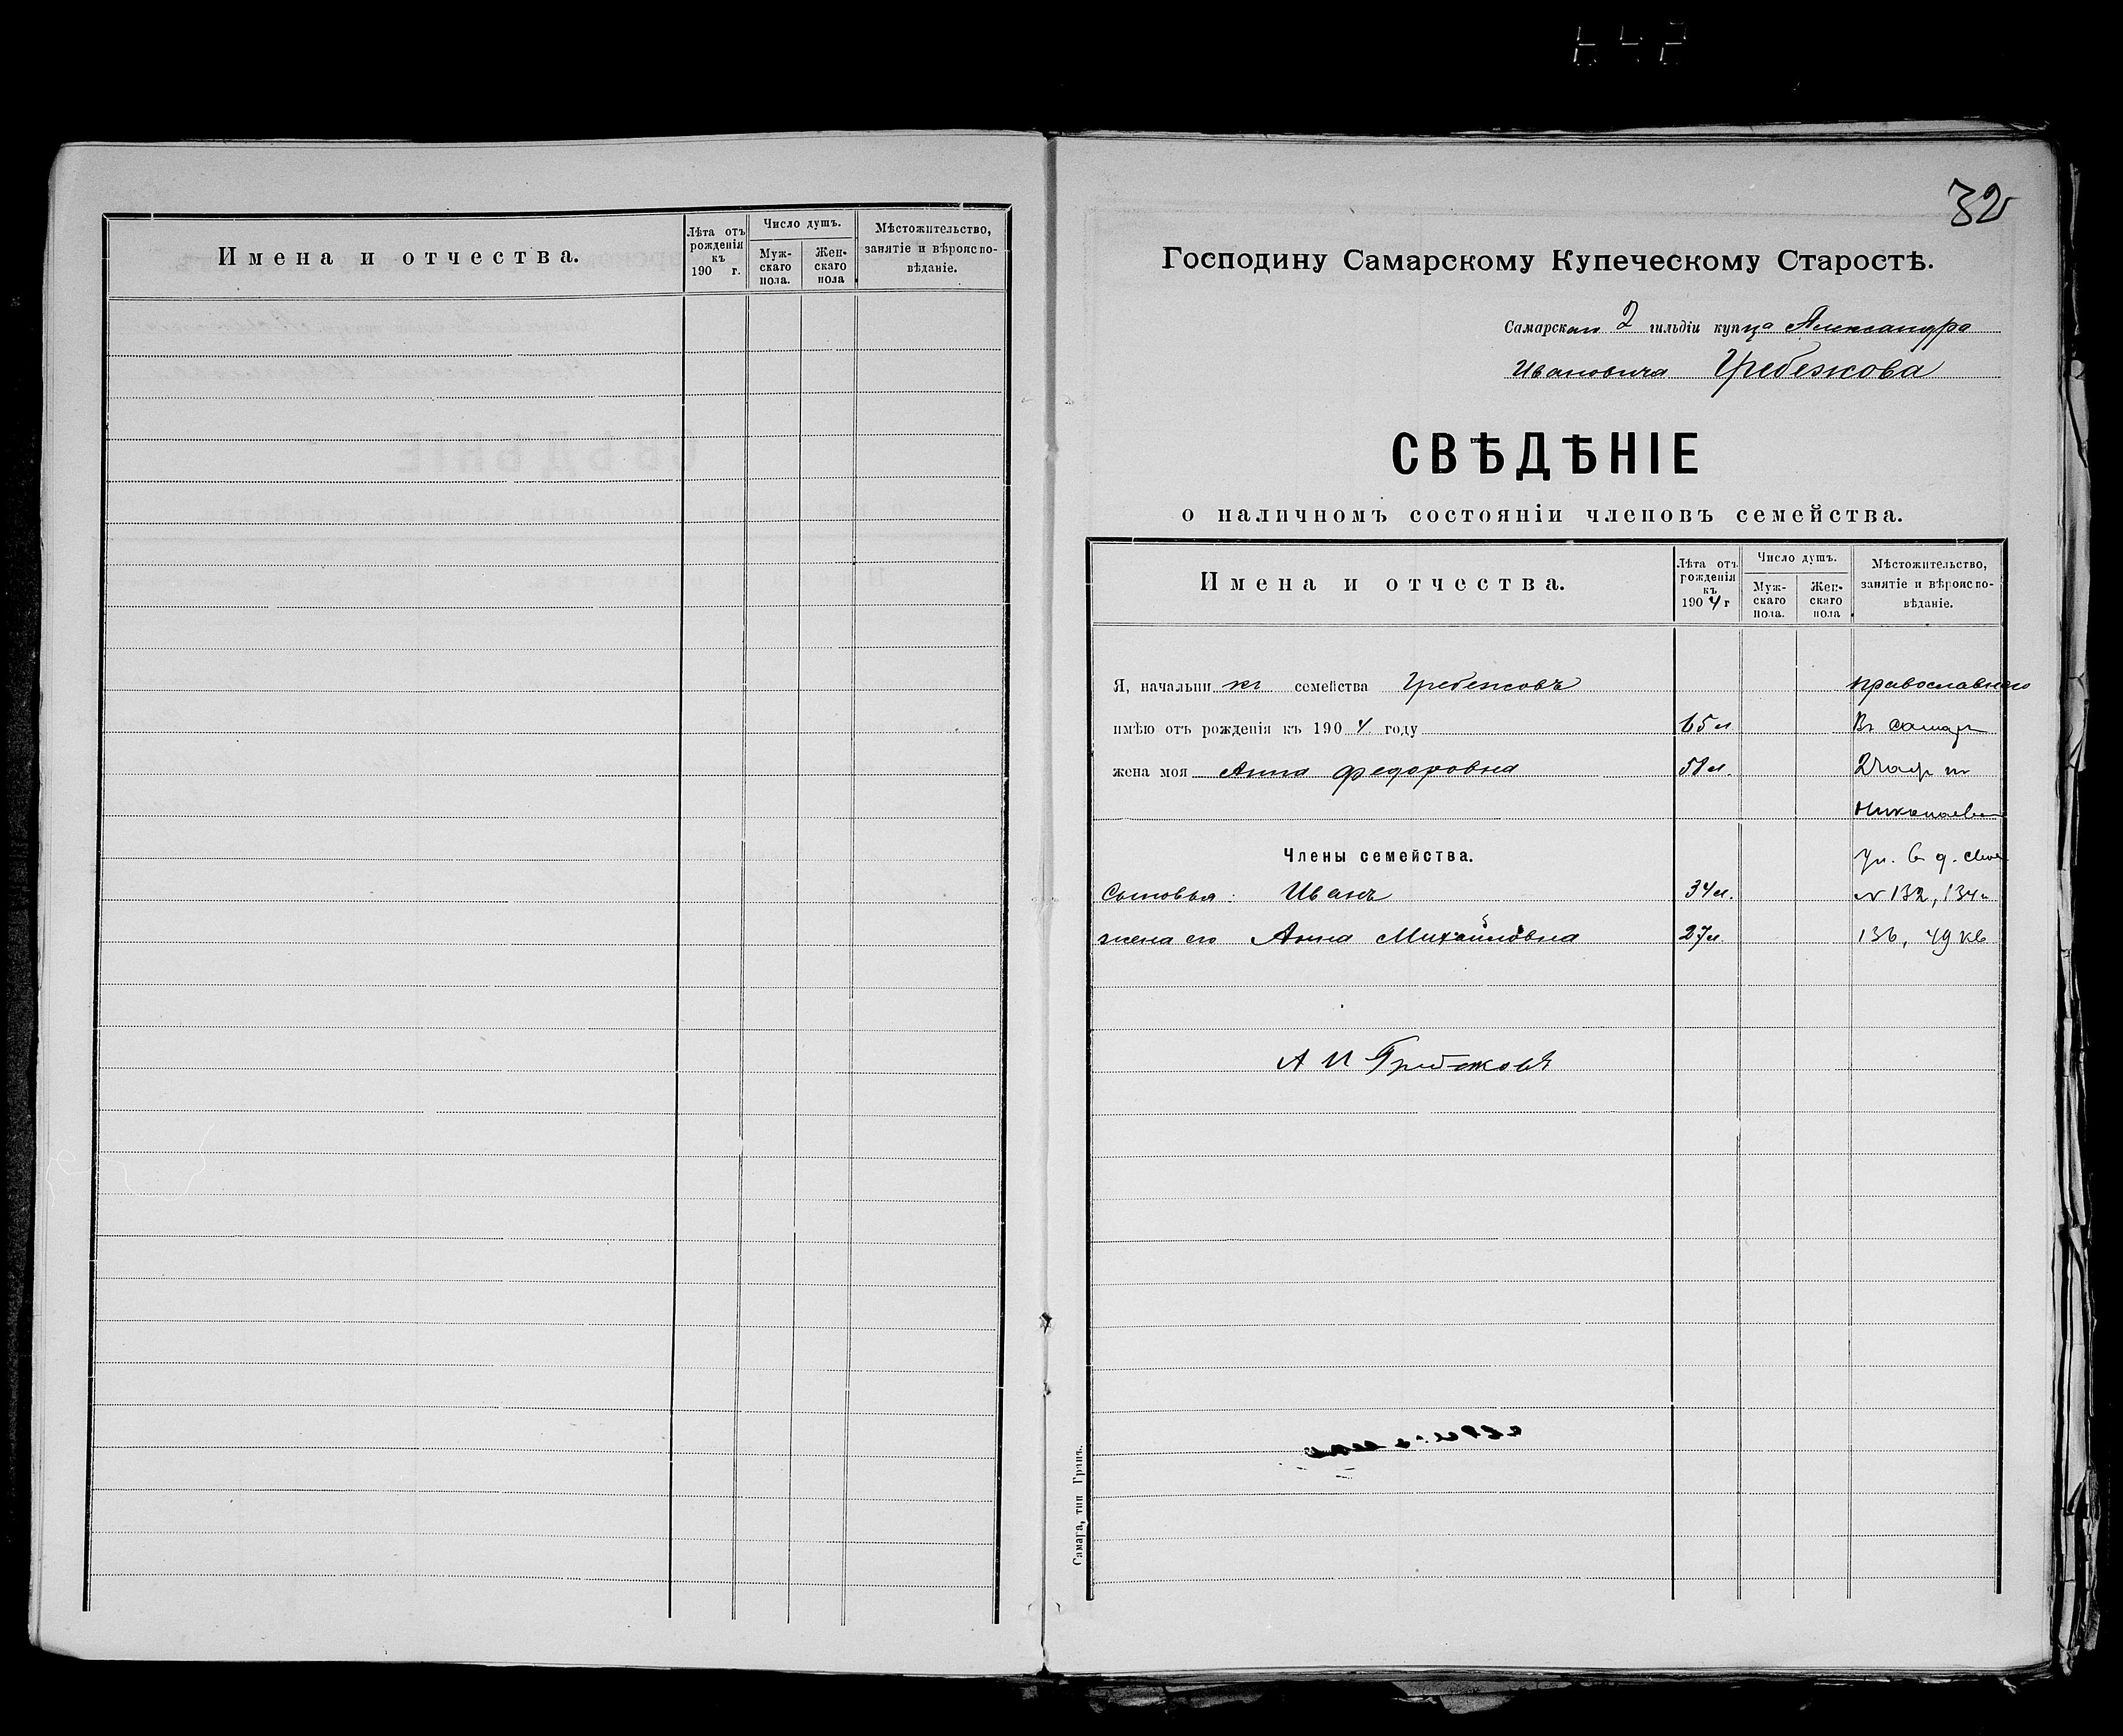 642
Имена и отчества.
Лѣта отъ рожденія къ 190 г.
Число душъ.
Мужскаго пола.
Женскаго пола
Мѣстожительство, занятіе и вѣроисповѣданіе.
32
Господину Самарскому Купеческому Старостѣ.
Самарскаго 2 гильдіи купца Александра
Ивановича Гребежкова
СВѢДѢНІЕ
о наличномъ состояніи членовъ семейства.
Имена и отчества.
Лѣта отъ рожденія къ 1904 г
Число душъ.
Мужскаго пола.
Женскаго пола
Мѣстожительство, занятіе и вѣроисповѣданіе.
Я, начальникъ семейства Гребежковъ православнаго
имѣю отъ рожденія къ 1904 году 65 л Въ самар
жена моя Анна Федоровна 58 л. 2 част по
Николаевс
Члены семейства. ул. в д. свое
Сыновья: Иванъ 34 л. № 132, 134 и
жена его Анна Михайловна 27 л. 136, 49 кв
А И Гребежковъ
Самара, тип Гранъ.